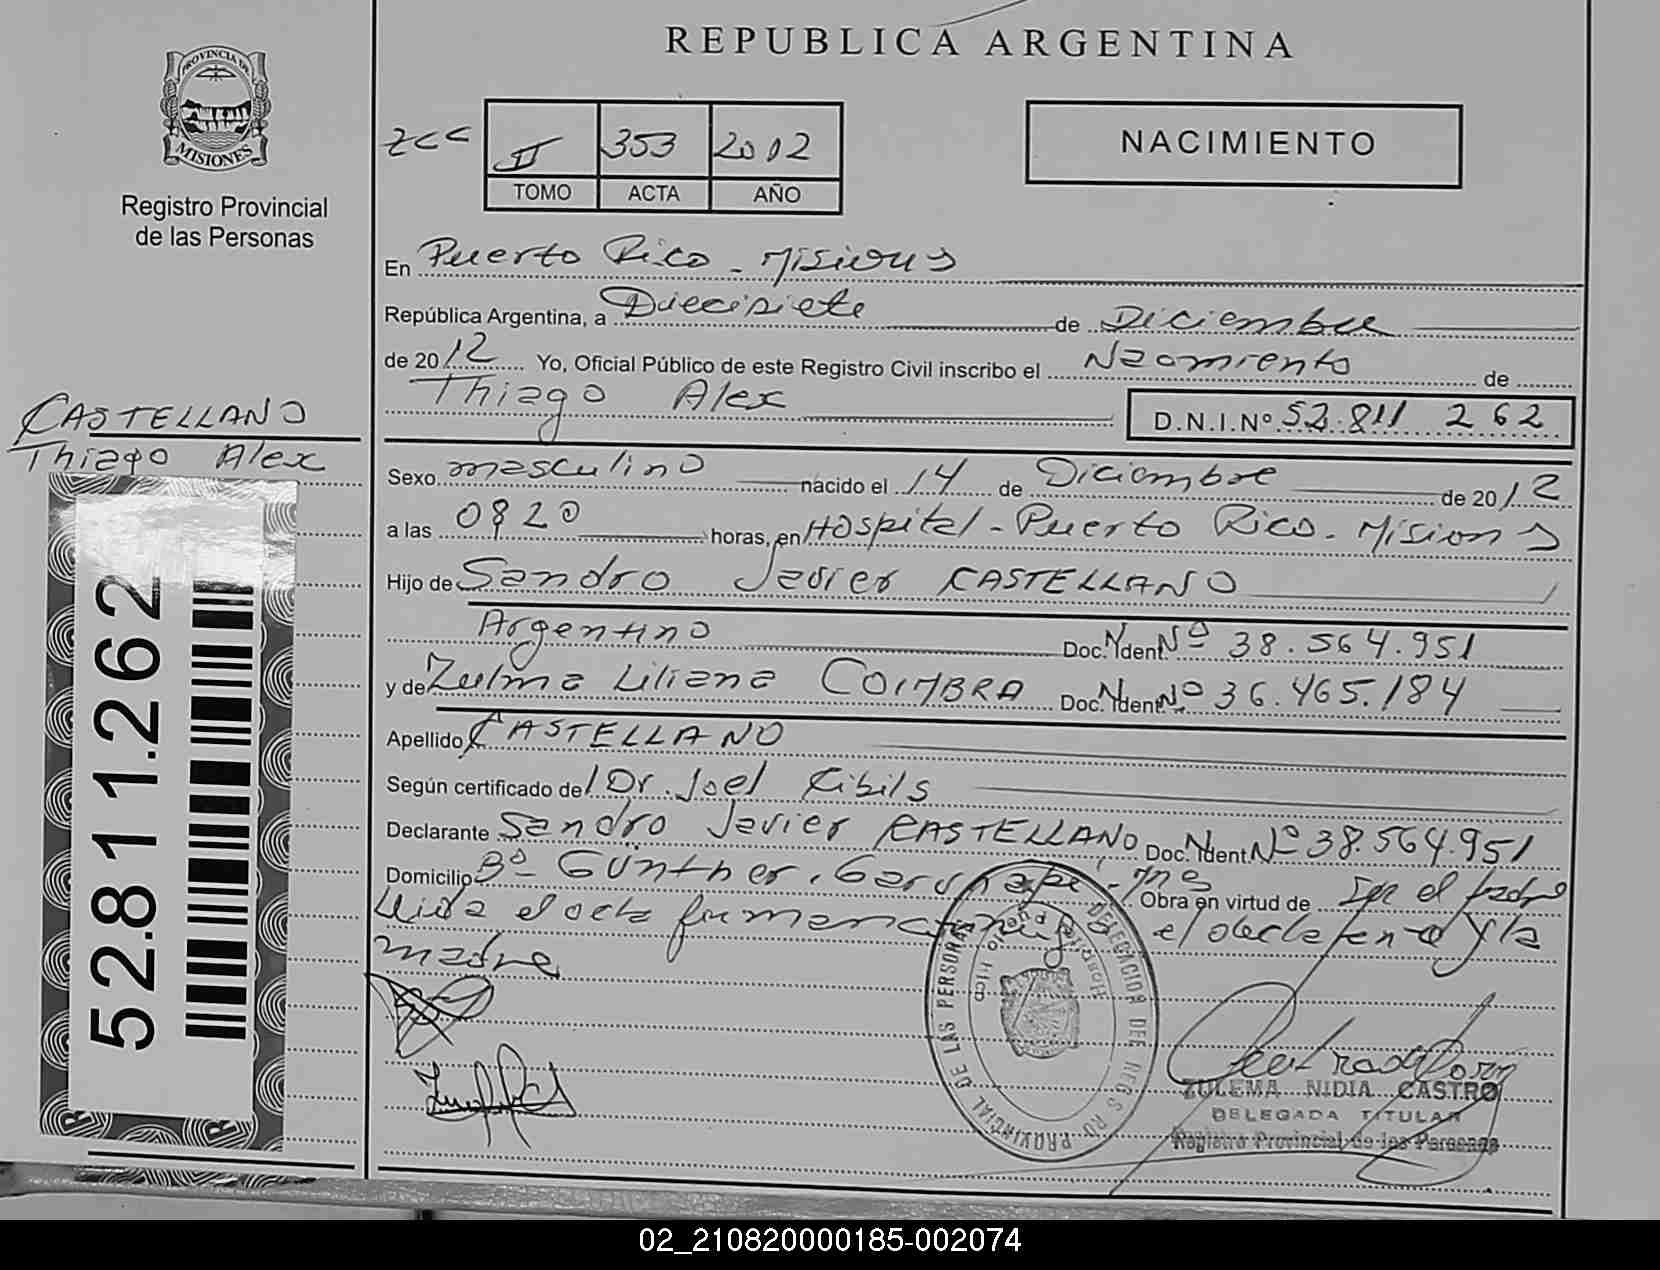 REPUBLICA ARGENTINA
PROVINCIA DE
MISIONES
Registro Provincial
de las Personas
II 353 2012
TOMO ACTA AÑO
NACIMIENTO
En Puerto Rico - Misiones
República Argentina, a Diecisiete de Diciembre
de 2012 Yo, Oficial Público de este Registro Civil inscribo el Nacimiento de
Thiago Alex
D.N.I.Nº 52.811 262
CASTELLANO
Thiago Alex
Sexo masculino nacido el 14 de Diciembre de 2012
a las 0820 horas, en Hospital - Puerto Rico - Misiones
Hijo de Sandro Javier CASTELLANO
Argentino Doc. Ident. Nº 38.564.951
y de Zulma Liliana COIMBRA Doc. Ident. Nº 36.465.184
Apellido CASTELLANO
Según certificado del Dr. Joel Cibils
Declarante Sandro Javier CASTELLANO Doc. Ident Nº 38.564.951
Domicilio Bº Günther, Garuhapé, Mnes Obra en virtud de Ser el padre
Leída el acta firman conmigo el declarante y la
madre
52.811.262
PROVINCIAL DE LAS PERSONAS
DELEGACION DEL REGISTRO
Hospital Puerto Rico
ZULEMA NIDIA CASTRO
DELEGADA TITULAR
Registro Provincial de las Personas
02_210820000185-002074